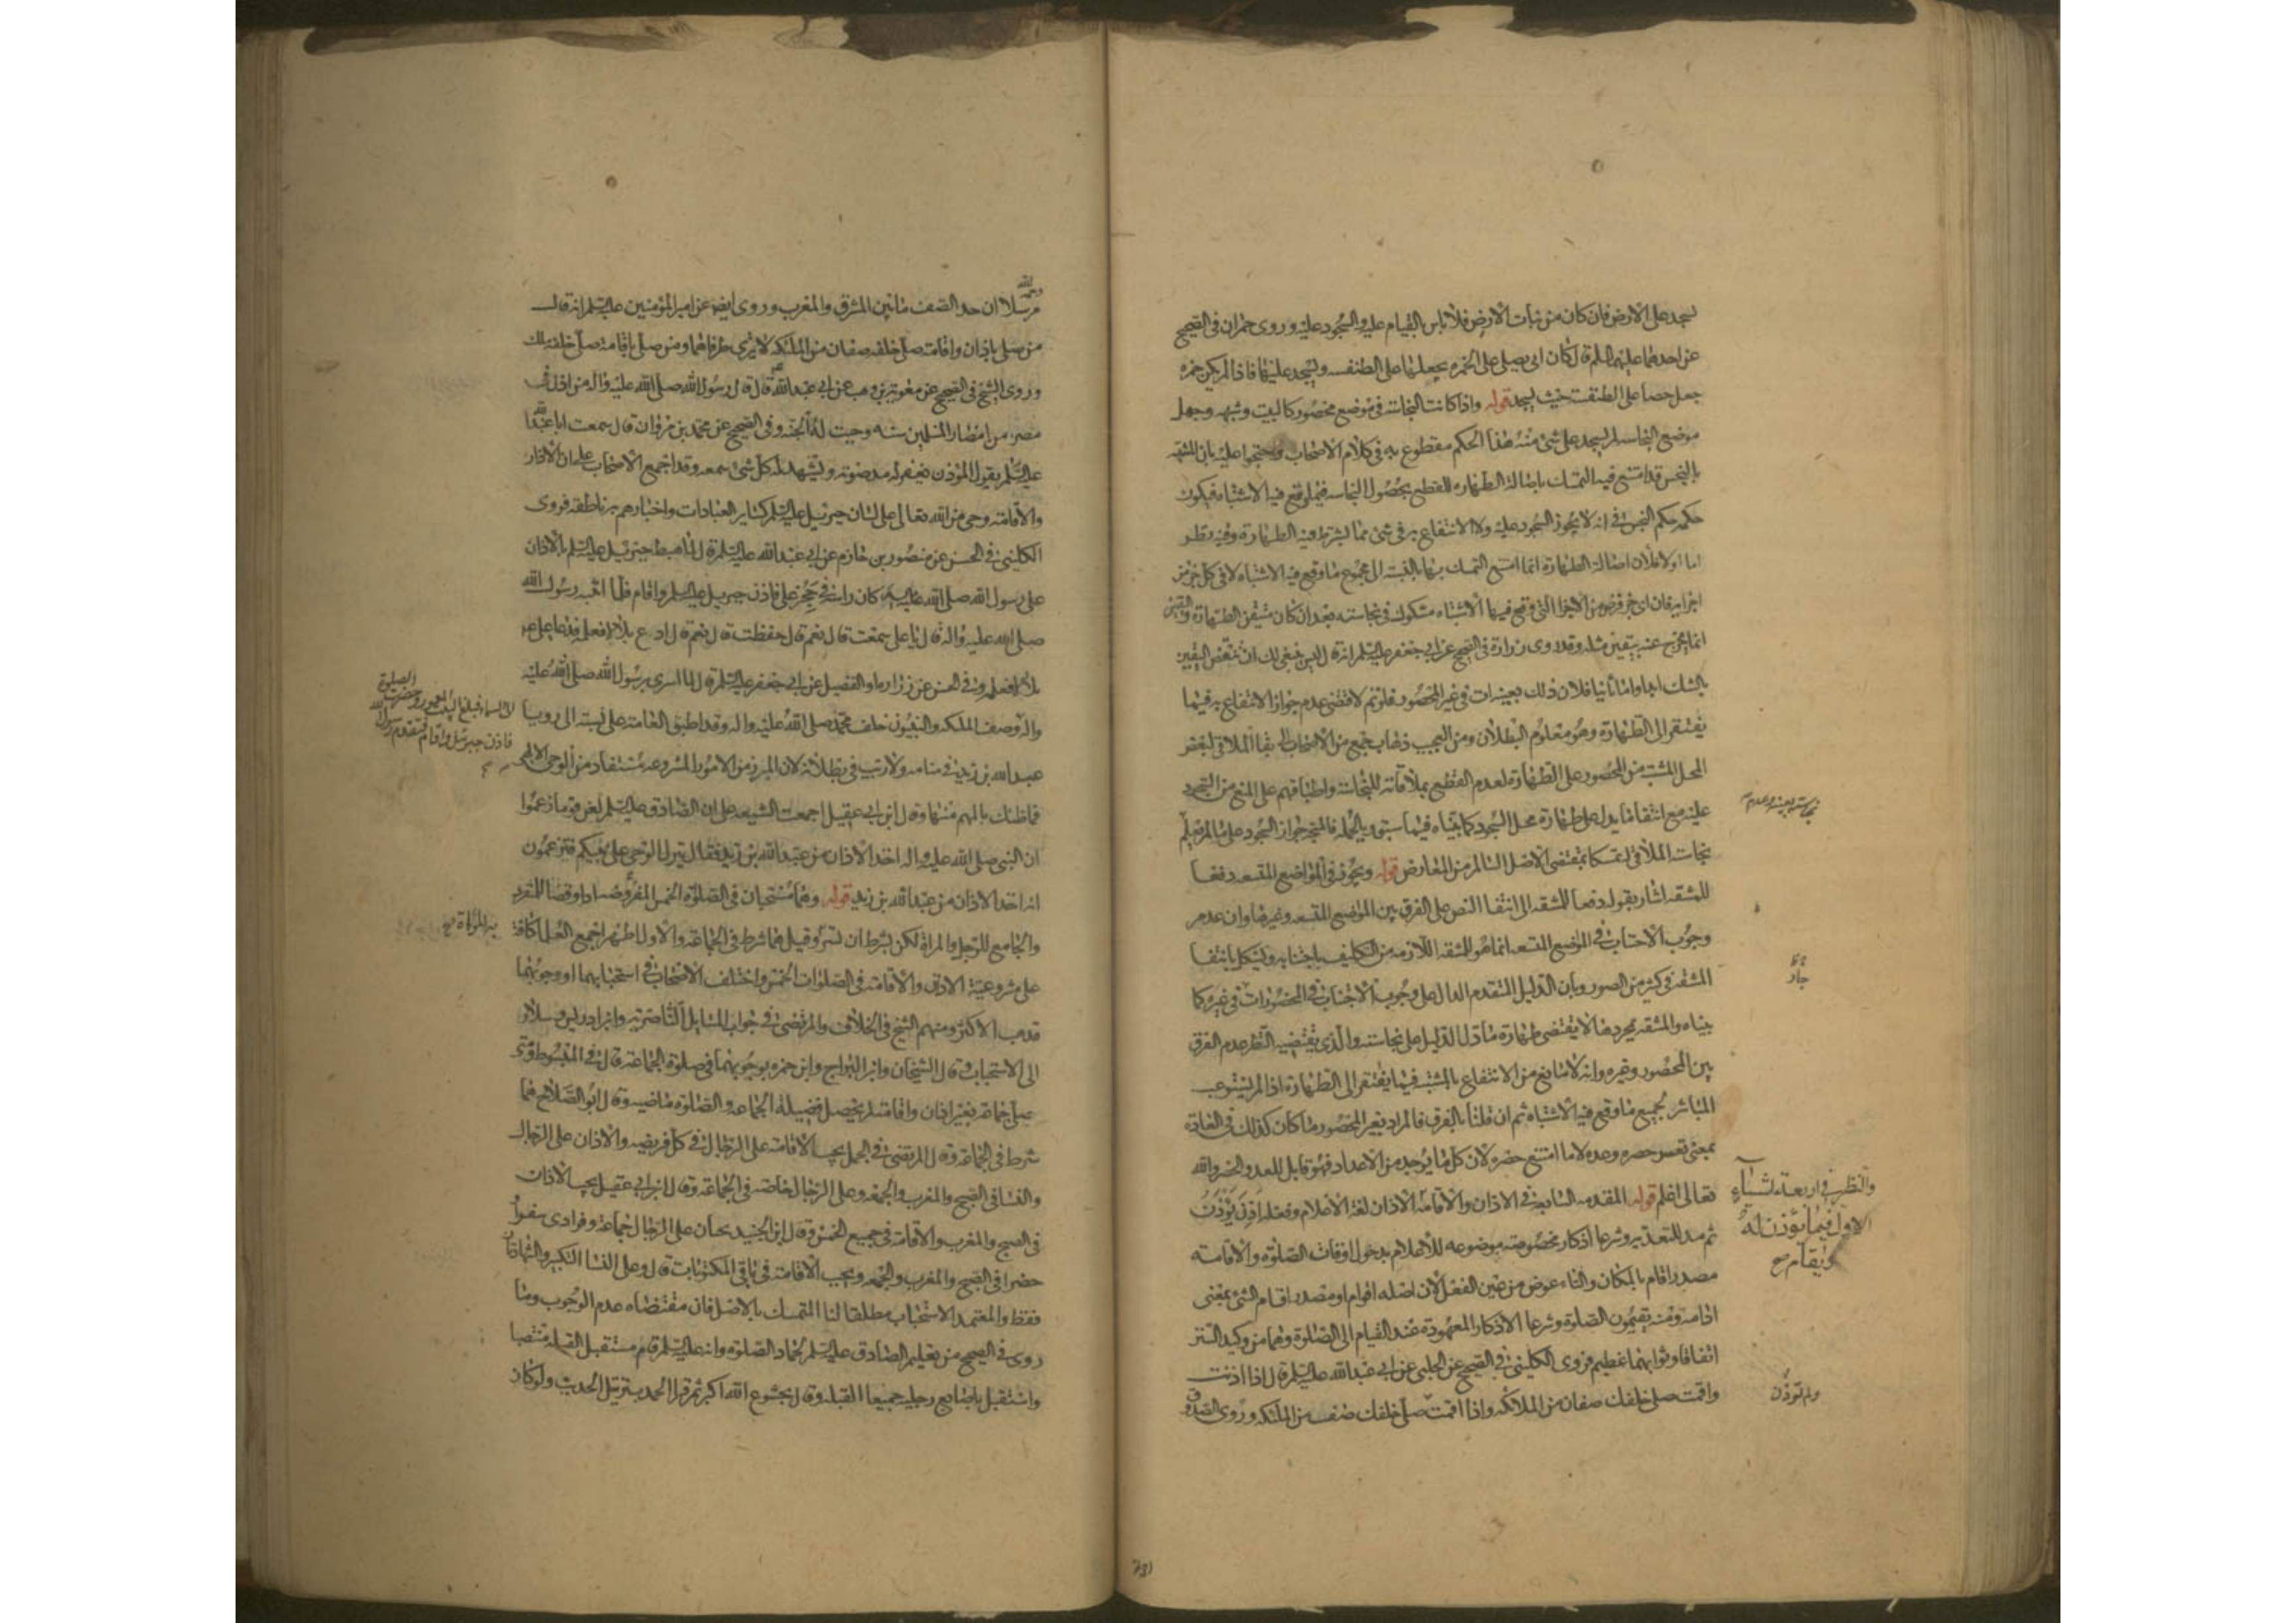 يسجد على الارض فان كان من نبات الارض فلا باس بالقيام عليه والسجود عليه وروى حمران في الصحيح
عن احدهما عليهما السلم قال كان ابي يصلي على الخمره يجعلها على الطنفسه ويسجد عليها فاذا لم يكن خمره
جعل حصا على الطنفسة حيث يسجد قوله واذا كانت النجاسة في موضع محصور كالبيت وشبهه وجهل
موضع النجاسه لم يسجد على شئ منه هذا الحكم مقطوع به في كلام الاصحاب واحتجوا عليه بان المشتبه
بالنجس قد امتنع فيه التمسك باصالة الطهاره للقطع بحصول النجاسه فيما وقع فيه الاشتباه فيكون
حكمه حكم النجس في انه لا يجوز السجود عليه ولا الانتفاع به في شئ مما يشترط فيه الطهارة وفيه نظر
اما اولا فلان اصالة الطهارة انما امتنع التمسك بها بالنسبة الى مجموع ما وقع فيه الاشتباه لا في كل جزء من
اجزايه فان اي جزء فرض من الاجزا التي وقع فيها الاشتباه مشكوك في نجاسته بعد ان كان متيقن الطهارة واليقين
انما يخرج عنه بيقين مثله وقد روى زرارة في الصحيح عن ابي جعفر عليه السلم انه قال ليس ينبغي لك ان تنقض اليقين
بالشك ابدا واما ثانيا فلان ذلك بعينه ات في غير المحصور فلو تم لاقتضى عدم جواز الانتفاع به فيما
يفتقر الى الطهارة وهو معلوم البطلان ومن العجب ذهاب جمع من الاصحاب الى بقا الملاقي لبعض
المحل المشتبه من المحصور على الطهارة لعدم القطع بملاقاته للنجاسة واطباقهم على المنع من السجود
عليه مع انتفا ما يدل على طهارة محل السجود كما بيناه فيما سبق وبالجمله فالمتجه جواز السجود على ما لم يعلم
نجاسته بعينه وعدم
نجاسة الملاقي له تمسكا بمقتضى الاصل السالم من المعارض قوله ويجوز في المواضع المتسعه دفعا
للمشقه اشار بقوله دفعا للمشقه الى انتفا النص على الفرق بين المواضع المتسعه وغيرها وان عدم
وجوب الاجتناب في الموضع المتسعه انما هو للمشقه اللازمه من التكليف باجتنابه ويشكل بانتفا
المشقة في كثير من الصور وبان الدليل المتقدم الدال على وجوب الاجتناب في المحصور ات في غيره كما
بيناه والمشقه بمجردها لا يقتضي طهارة ما دل الدليل على نجاسته والذي يقتضيه النظر عدم الفرق
بين المحصور وغيره وانه لا مانع من الانتفاع بالمشتبه فيما يفتقر الى الطهارة اذا لم يستوعب
المباشر لجميع ما وقع فيه الاشتباه ثم ان قلنا بالفرق فالمراد بغير المحصور ما كان كذلك في العادة
بمعنى تعسر حصره وعده لا ما امتنع حصره لان كل ما يوجد من الاعداد فهو قابل للعد والحصر والله
تعالى اعلم قوله المقدمه السابعة في الاذان والاقامة الاذان لغة الاعلام وفعله اذن يؤذن
والنظر في اربعة اشياء
الاول فيما يؤذن له
ويقام
ثم مد للتعديه وشرعا اذكار مخصوصه موضوعه للاعلام بدخول اوقات الصلوة والاقامة
مصدر اقام بالمكان والتاء عوض من عين الفعل لان اصله اقوام او مصدر اقام الشئ بمعنى
ادامه ومنه يقيمون الصلوة وشرعا الاذكار المعهودة عند القيام الى الصلوة وهما من وكيد السنن
اتفاقا وثوابهما عظيم فروى الكليني في الصحيح عن الحلبي عن ابي عبدالله عليه السلم قال اذا اذنت
واقمت صلى خلفك صفان من الملائكه واذا اقمت صلى خلفك صف من الملئكه وروى الصدوق
ولم تؤذن
مرسلا ان حد الصف ما بين المشرق والمغرب وروى ايضا عن امير المؤمنين عليه السلم انه قال
من صلى باذان واقامة صلى خلفه صفان من الملئكه لا يرى طرفاهما ومن صلى باقامة صلى خلفه ملك
وروى الشيخ في الصحيح عن معوية بن وهب عن ابي عبدالله قال قال رسول الله صلى الله عليه واله من اذن في
مصر من امصار المسلمين سنه وجبت له الجنه وفي الصحيح عن محمد بن مروان قال سمعت ابا عبدالله
عليه السلم يقول المؤذن يغفر له مد صوته ويشهد له كل شئ سمعه وقد اجمع الاصحاب على ان الاذان
والاقامة وحي من الله تعالى على لسان جبرئيل عليه السلم كساير العبادات واخبارهم به ناطقه فروى
الكليني في الحسن عن منصور بن حازم عن ابي عبدالله عليه السلم قال لما هبط جبرئيل عليه السلم بالاذان
على رسول الله صلى الله عليه واله كان راسه في حجر علي فاذن جبريل عليه السلم واقام فلما انتبه رسول الله
صلى الله عليه واله قال يا علي سمعت قال نعم قال حفظت قال نعم قال ادع بلالا فعلمه فدعا علي عم
بلالا فعلمه وفي الحسن عن زرارة والفضيل عن ابي جعفر عليه السلم قال لما اسرى برسول الله صلى الله عليه
الى السماء فبلغ البيت المعمور وحضرت الصلوة
فاذن جبرئيل واقام فتقدم رسول الله
واله وصف الملئكه والنبيون خلف محمد صلى الله عليه واله وقد اطبق العامة على نسبته الى رويا
عبدالله بن زيد في منامه ولا ريب في بطلانه لان المبرز من الامور المشروعه مستفاد من الوحي الالهي
فما ظنك بالمهم منها وقال ابن ابي عقيل اجمعت الشيعه على ان الصادق عليه السلم لعن قوما زعموا
ان النبي صلى الله عليه واله اخذ الاذان من عبدالله بن زيد فقال ينزل الوحي على نبيكم فتزعمون
انه اخذ الاذان من عبدالله بن زيد قوله وهما مستحبان في الصلوة الخمس المفروضه ادا وقضا للمنفرد
والجامع للرجل والمراة لكن بشرط ان تسر وقيل هما شرط في الجماعة والاول اظهر اجمع العلما كافة
به المراة
على مشروعية الاذان والاقامة في الصلوات الخمس واختلف الاصحاب في استحبابهما او وجوبهما
فذهب الاكثر ومنهم الشيخ في الخلاف والمرتضى في جواب المسايل الناصرية وابن ادريس وسلار
الى الاستحباب وقال الشيخان وابن البراج وابن حمزه بوجوبهما في صلوة الجماعة قال في المبسوط ومتى
صلى جماعة بغير اذان واقامة لم يحصل فضيلة الجماعه والصلوة ماضيه وقال ابو الصلاح هما
شرط في الجماعة وقال المرتضى في الجمل يجب الاقامة على الرجال في كل فريضه والاذان على الرجال
والنسا في الصبح والمغرب والجمعه وعلى الرجال خاصة في الجماعة وقال ابن ابي عقيل يجب الاذان
في الصبح والمغرب والاقامة في جميع الخمس وقال ابن الجنيد يجبان على الرجال جماعة وفرادى سفرا
حضرا في الصبح والمغرب والجمعه ويجب الاقامة في باقي المكتوبات قال وعلى النسا التكبير والشهادتان
فقط والمعتمد الاستحباب مطلقا لنا التمسك بالاصل فان مقتضاه عدم الوجوب وما
روى في الصحيح من تعليم الصادق عليه السلم لحماد الصلوة وانه عليه السلم قام مستقبل القبله منتصبا
واستقبل باصابع رجليه جميعا القبله وقال بخشوع الله اكبر ثم قرا الحمد بترتيل الحديث ولو كان